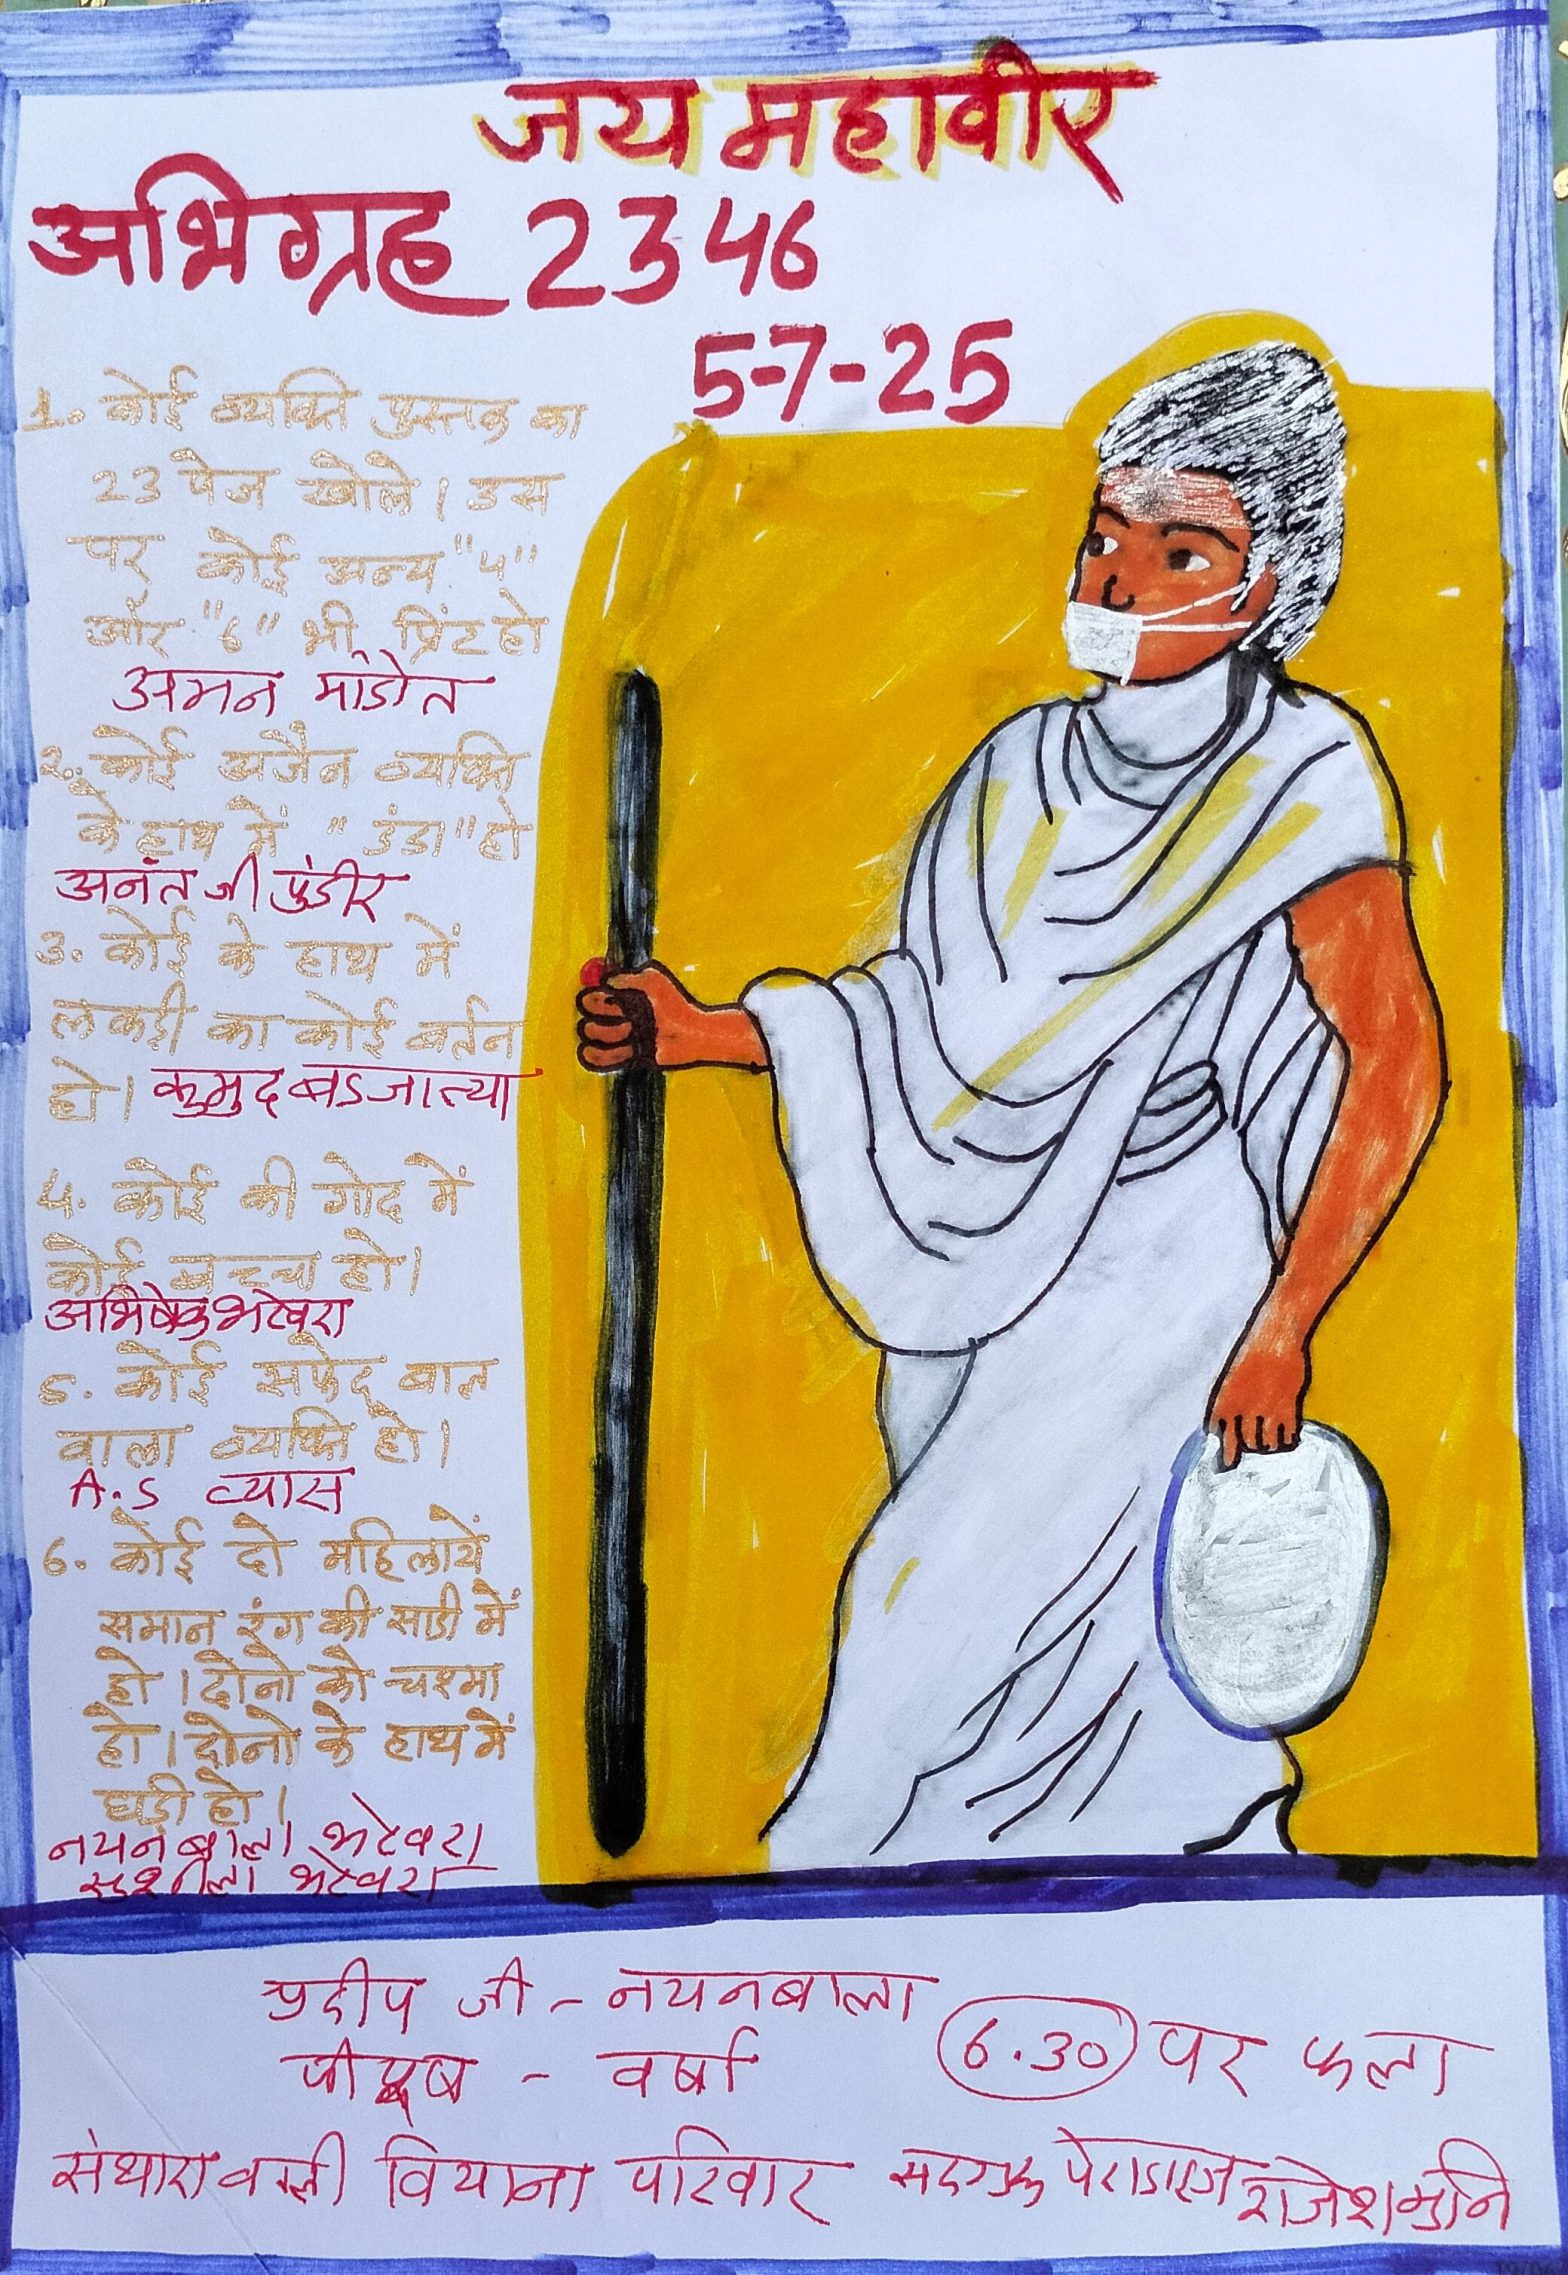 जय महावीर
अभिग्रह 2346
5-7-25
1. कोई व्यक्ति पुस्तक का
23 पेज खोले। उस
पर कोई अन्य "4"
और "6" भी प्रिंट हो
अमन मांडोत
2. कोई अजैन व्यक्ति
के हाथ में "डंडा" हो
अनंत जी पुंडीर
3. कोई के हाथ में
लकड़ी का कोई बर्तन
हो। कुमुद बडजात्या
4. कोई की गोद में
कोई बच्चा हो।
अभिषेक भटेवरा
5. कोई सफेद बाल
वाला व्यक्ति हो।
A.S व्यास
6. कोई दो महिलायें
समान रंग की साडी में
हो। दोनो को चश्मा
हो। दोनो के हाथ में
घड़ी हो।
नयनबाला भटेवरा
सुशीला भटेवरा
प्रदीप जी - नयनबाला
पीयूष - वर्षा
6.30 पर फला
संथारा वाली वियाना परिवार
राजेशमुनि